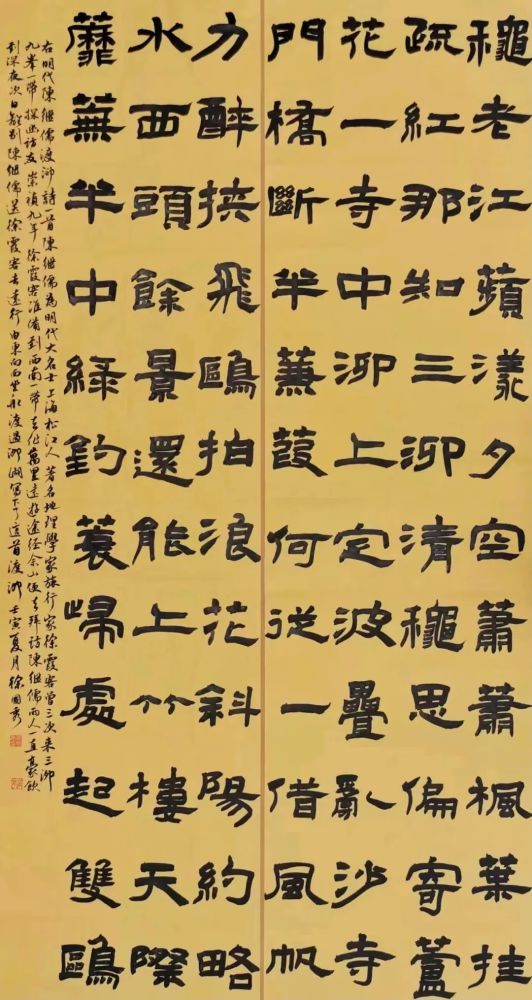 龝老江蘋漾夕空蕭蕭楓葉挂
疏紅那知三泖清龝思偏寄蘆
花一寺中泖上定波疊亂沙寺
門橋斷半蒹葭何從一借風帆
力醉挾飛鷗拍浪花斜陽約略
水西頭餘景還能上竹樓天際
蘼蕪半中綠釣蓑歸處起雙鷗
右明代陳繼儒渡泖詩一首陳繼儒為明代大名士上海松江人著名地理學家旅行家徐霞客曾三次來三泖
九峯一帶探幽訪友崇禎九年徐霞客準備到西南一帶去作萬里遠遊途經佘山便去拜訪陳繼儒兩人一直豪飲
到深夜次日離別陳繼儒送徐霞客去遠行由東向西坐船渡過泖湖寫下了這首渡泖壬寅夏月徐國秀